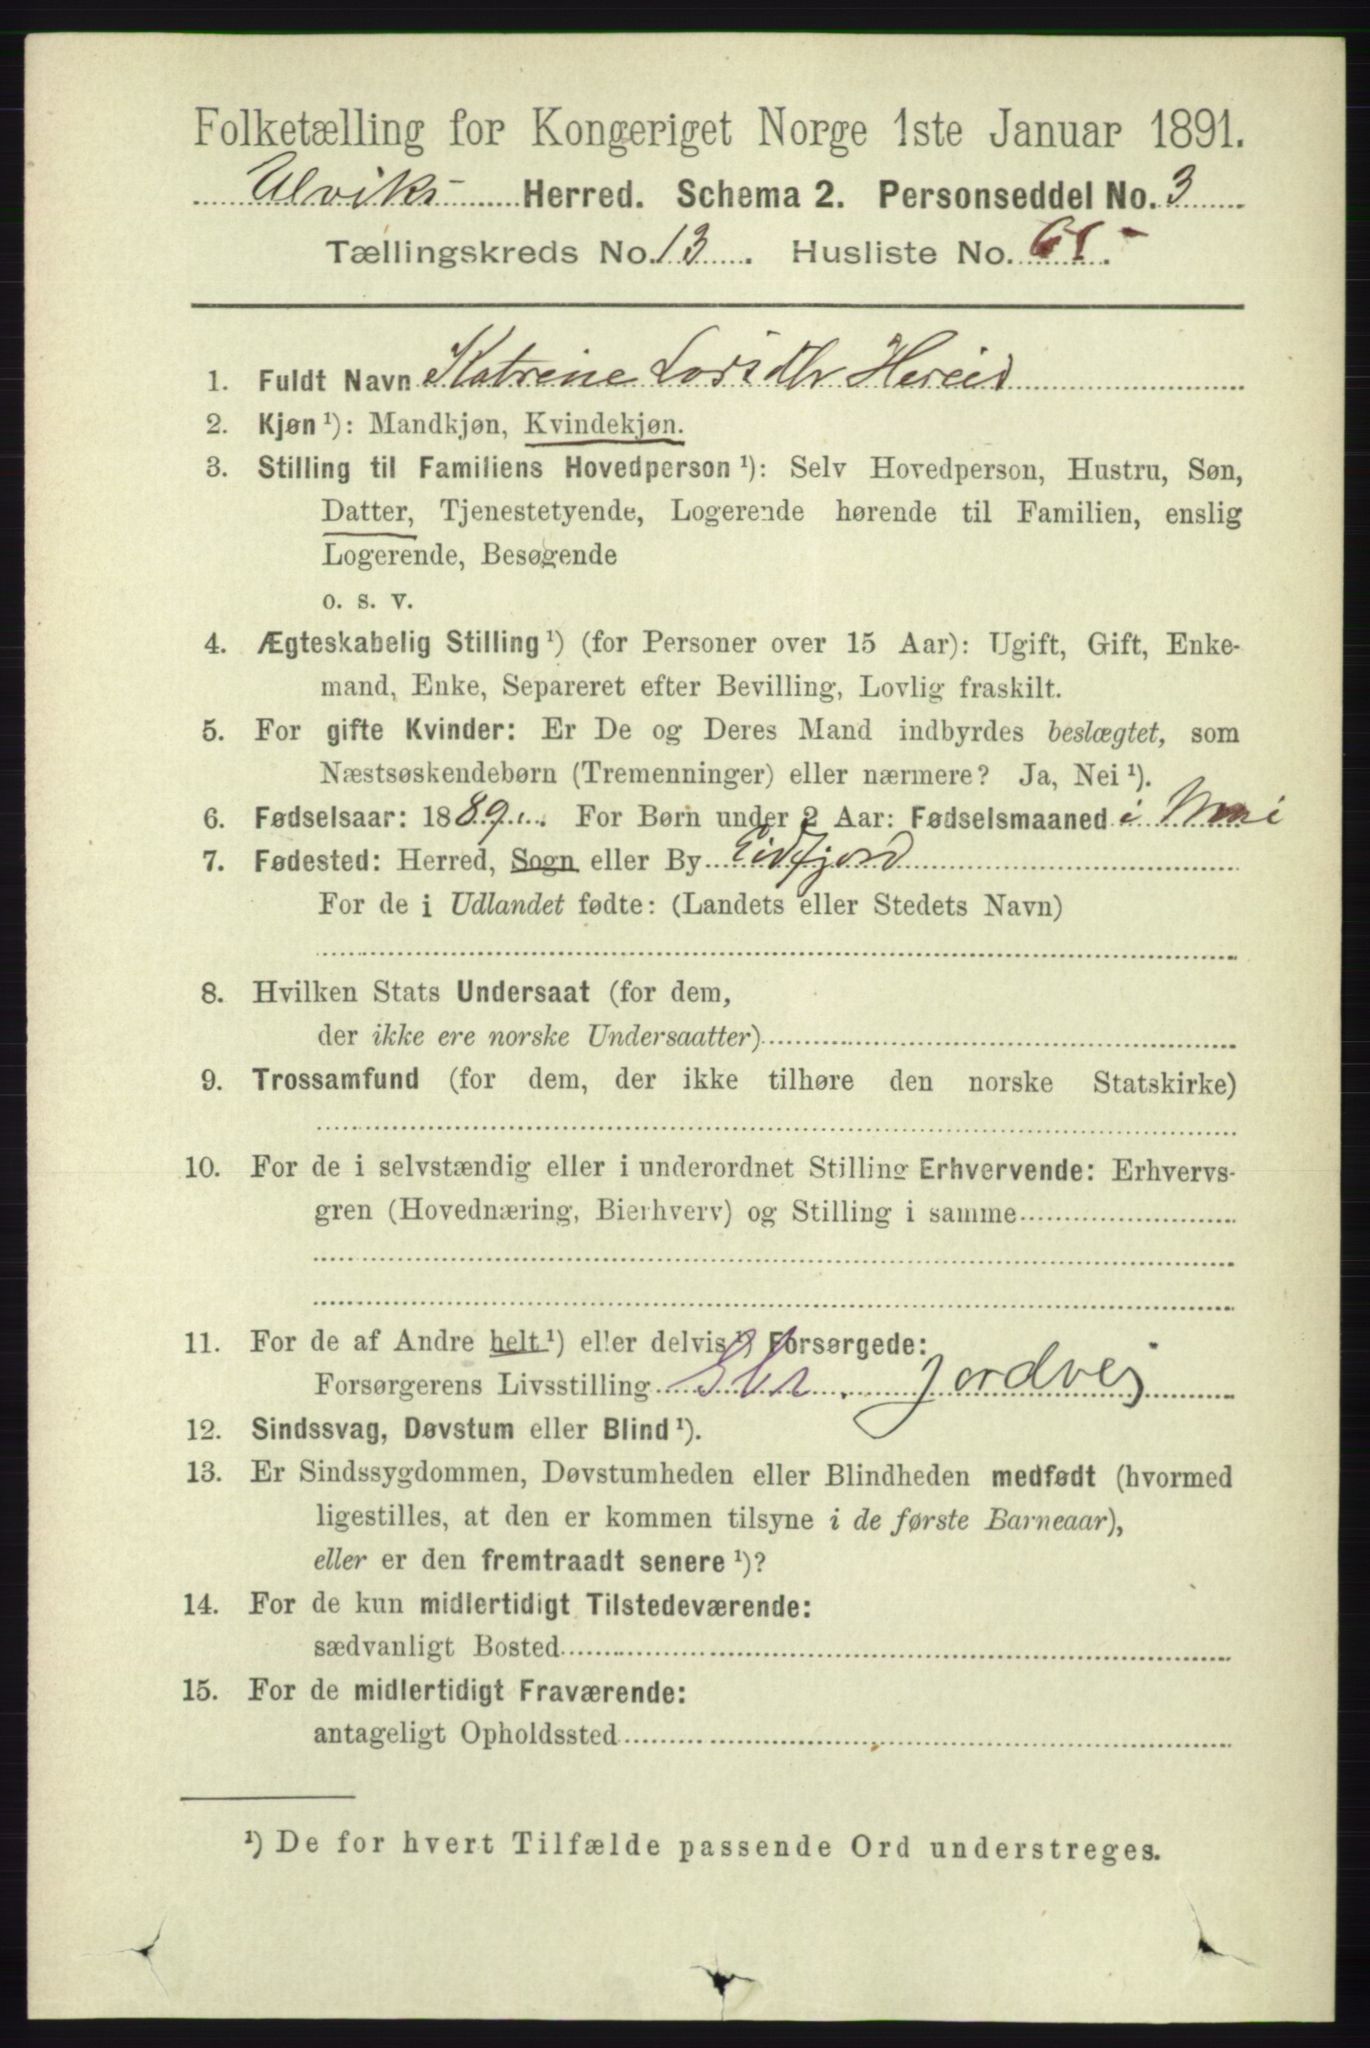 Folketælling for Kongeriget Norge 1ste Januar 1891.
Ulviks Herred. Schema 2. Personseddel No. 3
Tællingskreds No. 13. Husliste No.
1. Fuldt Navn Katrine Larsdtr Hereid
2. Kjøn ¹): Mandkjøn, Kvindekjøn.
3. Stilling til Familiens Hovedperson ¹): Selv Hovedperson, Hustru, Søn,
Datter, Tjenestetyende, Logerende hørende til Familien, enslig
Logerende, Besøgende
o. s. v.
4. Ægteskabelig Stilling ¹) (for Personer over 15 Aar): Ugift, Gift, Enke-
mand, Enke, Separeret efter Bevilling, Lovlig fraskilt.
5. For gifte Kvinder: Er De og Deres Mand indbyrdes beslægtet, som
Næstsøskendebørn (Tremenninger) eller nærmere? Ja, Nei ¹).
6. Fødselsaar: 1889. For Børn under 2 Aar: Fødselsmaaned i Mai
7. Fødested: Herred, Sogn eller By Eidfjord
For de i Udlandet fødte: (Landets eller Stedets Navn)
8. Hvilken Stats Undersaat (for dem,
der ikke ere norske Undersaatter)
9. Trossamfund (for dem, der ikke tilhøre den norske Statskirke)
10. For de i selvstændig eller i underordnet Stilling Erhvervende: Erhvervs-
gren (Hovednæring, Bierhverv) og Stilling i samme
11. For de af Andre helt ¹) eller delvis ¹) Forsørgede:
Forsørgerens Livsstilling Jordvej
12. Sindssvag, Døvstum eller Blind ¹).
13. Er Sindssygdommen, Døvstumheden eller Blindheden medfødt (hvormed
ligestilles, at den er kommen tilsyne i de første Barneaar),
eller er den fremtraadt senere ¹)?
14. For de kun midlertidigt Tilstedeværende:
sædvanligt Bosted
15. For de midlertidigt Fraværende:
antageligt Opholdssted
¹) De for hvert Tilfælde passende Ord understreges.